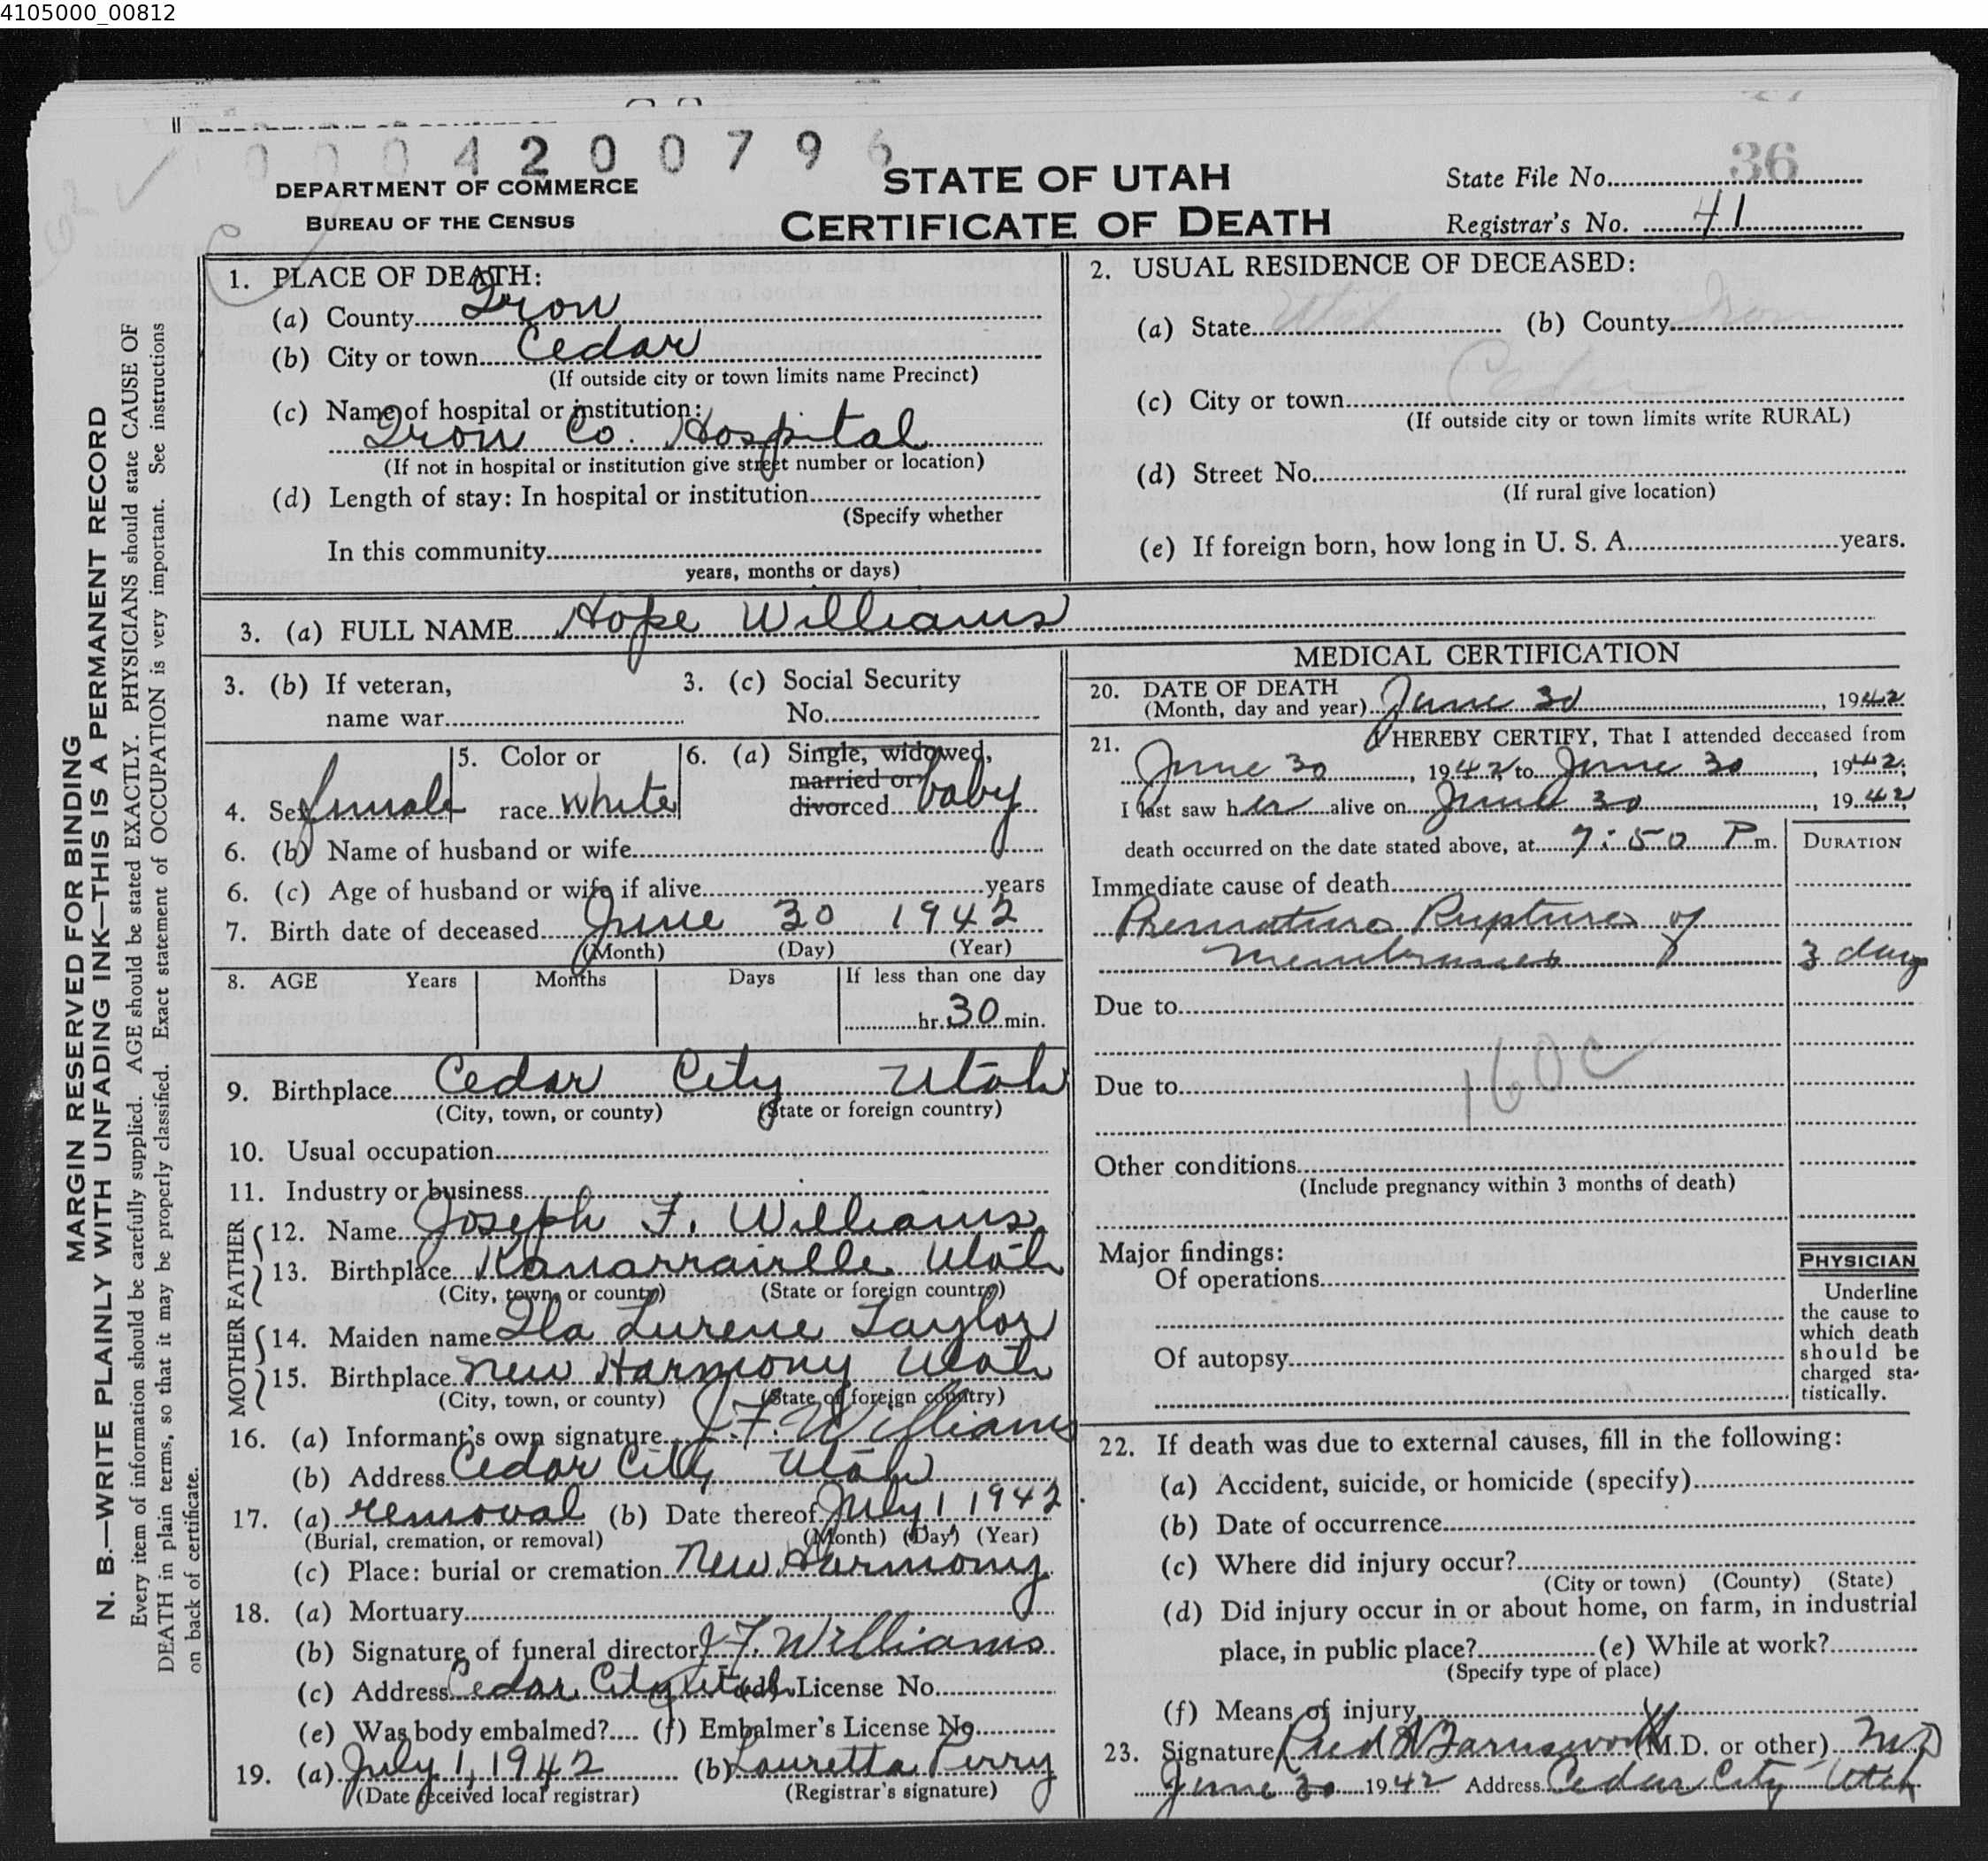 4105000_00812
0004200796
DEPARTMENT OF COMMERCE
BUREAU OF THE CENSUS
STATE OF UTAH
CERTIFICATE OF DEATH
State File No. 36
Registrar's No. 41
MARGIN RESERVED FOR BINDING
N. B.—WRITE PLAINLY WITH UNFADING INK—THIS IS A PERMANENT RECORD
Every item of information should be carefully supplied. AGE should be stated EXACTLY. PHYSICIANS should state CAUSE OF
DEATH in plain terms, so that it may be properly classified. Exact statement of OCCUPATION is very important. See instructions
on back of certificate.
1. PLACE OF DEATH:
(a) County Iron
(b) City or town Cedar
(If outside city or town limits name Precinct)
(c) Name of hospital or institution:
Iron Co. Hospital
(If not in hospital or institution give street number or location)
(d) Length of stay: In hospital or institution
(Specify whether
In this community
years, months or days)
2. USUAL RESIDENCE OF DECEASED:
(a) State Utah (b) County Iron
(c) City or town Cedar
(If outside city or town limits write RURAL)
(d) Street No.
(If rural give location)
(e) If foreign born, how long in U. S. A. years.
3. (a) FULL NAME Hope Williams
3. (b) If veteran,
name war
3. (c) Social Security
No.
4. Sex female
5. Color or
race white
6. (a) Single, widowed,
married or
divorced baby
6. (b) Name of husband or wife
6. (c) Age of husband or wife if alive years
7. Birth date of deceased June 30 1942
(Month) (Day) (Year)
8. AGE Years Months Days If less than one day
hr. 30 min.
9. Birthplace Cedar City Utah
(City, town, or county) (State or foreign country)
10. Usual occupation
11. Industry or business
FATHER
12. Name Joseph F. Williams
13. Birthplace Kanarraville Utah
(City, town, or county) (State or foreign country)
MOTHER
14. Maiden name Ila Lurene Taylor
15. Birthplace New Harmony Utah
(City, town, or county) (State of foreign country)
16. (a) Informant's own signature J. F. Williams
(b) Address Cedar City Utah
17. (a) removal (b) Date thereof July 1 1942
(Burial, cremation, or removal) (Month) (Day) (Year)
(c) Place: burial or cremation New Harmony
18. (a) Mortuary
(b) Signature of funeral director J. F. Williams
(c) Address Cedar City Utah (d) License No.
(e) Was body embalmed? (f) Embalmer's License No.
19. (a) July 1, 1942 (b) Lauretta Perry
(Date received local registrar) (Registrar's signature)
MEDICAL CERTIFICATION
20. DATE OF DEATH
(Month, day and year) June 30, 1942
21. I HEREBY CERTIFY, That I attended deceased from
June 30, 1942 to June 30, 1942;
I last saw her alive on June 30, 1942;
death occurred on the date stated above, at 7:50 P m. DURATION
Immediate cause of death
Premature Rupture of
Membranes 3 days
Due to
Due to 160c
Other conditions
(Include pregnancy within 3 months of death)
Major findings:
Of operations
Of autopsy
PHYSICIAN
Underline
the cause to
which death
should be
charged sta-
tistically.
22. If death was due to external causes, fill in the following:
(a) Accident, suicide, or homicide (specify)
(b) Date of occurrence
(c) Where did injury occur?
(City or town) (County) (State)
(d) Did injury occur in or about home, on farm, in industrial
place, in public place? (e) While at work?
(Specify type of place)
(f) Means of injury
23. Signature Reed W Farnsworth (M.D. or other) MD
June 30 1942 Address Cedar City Utah